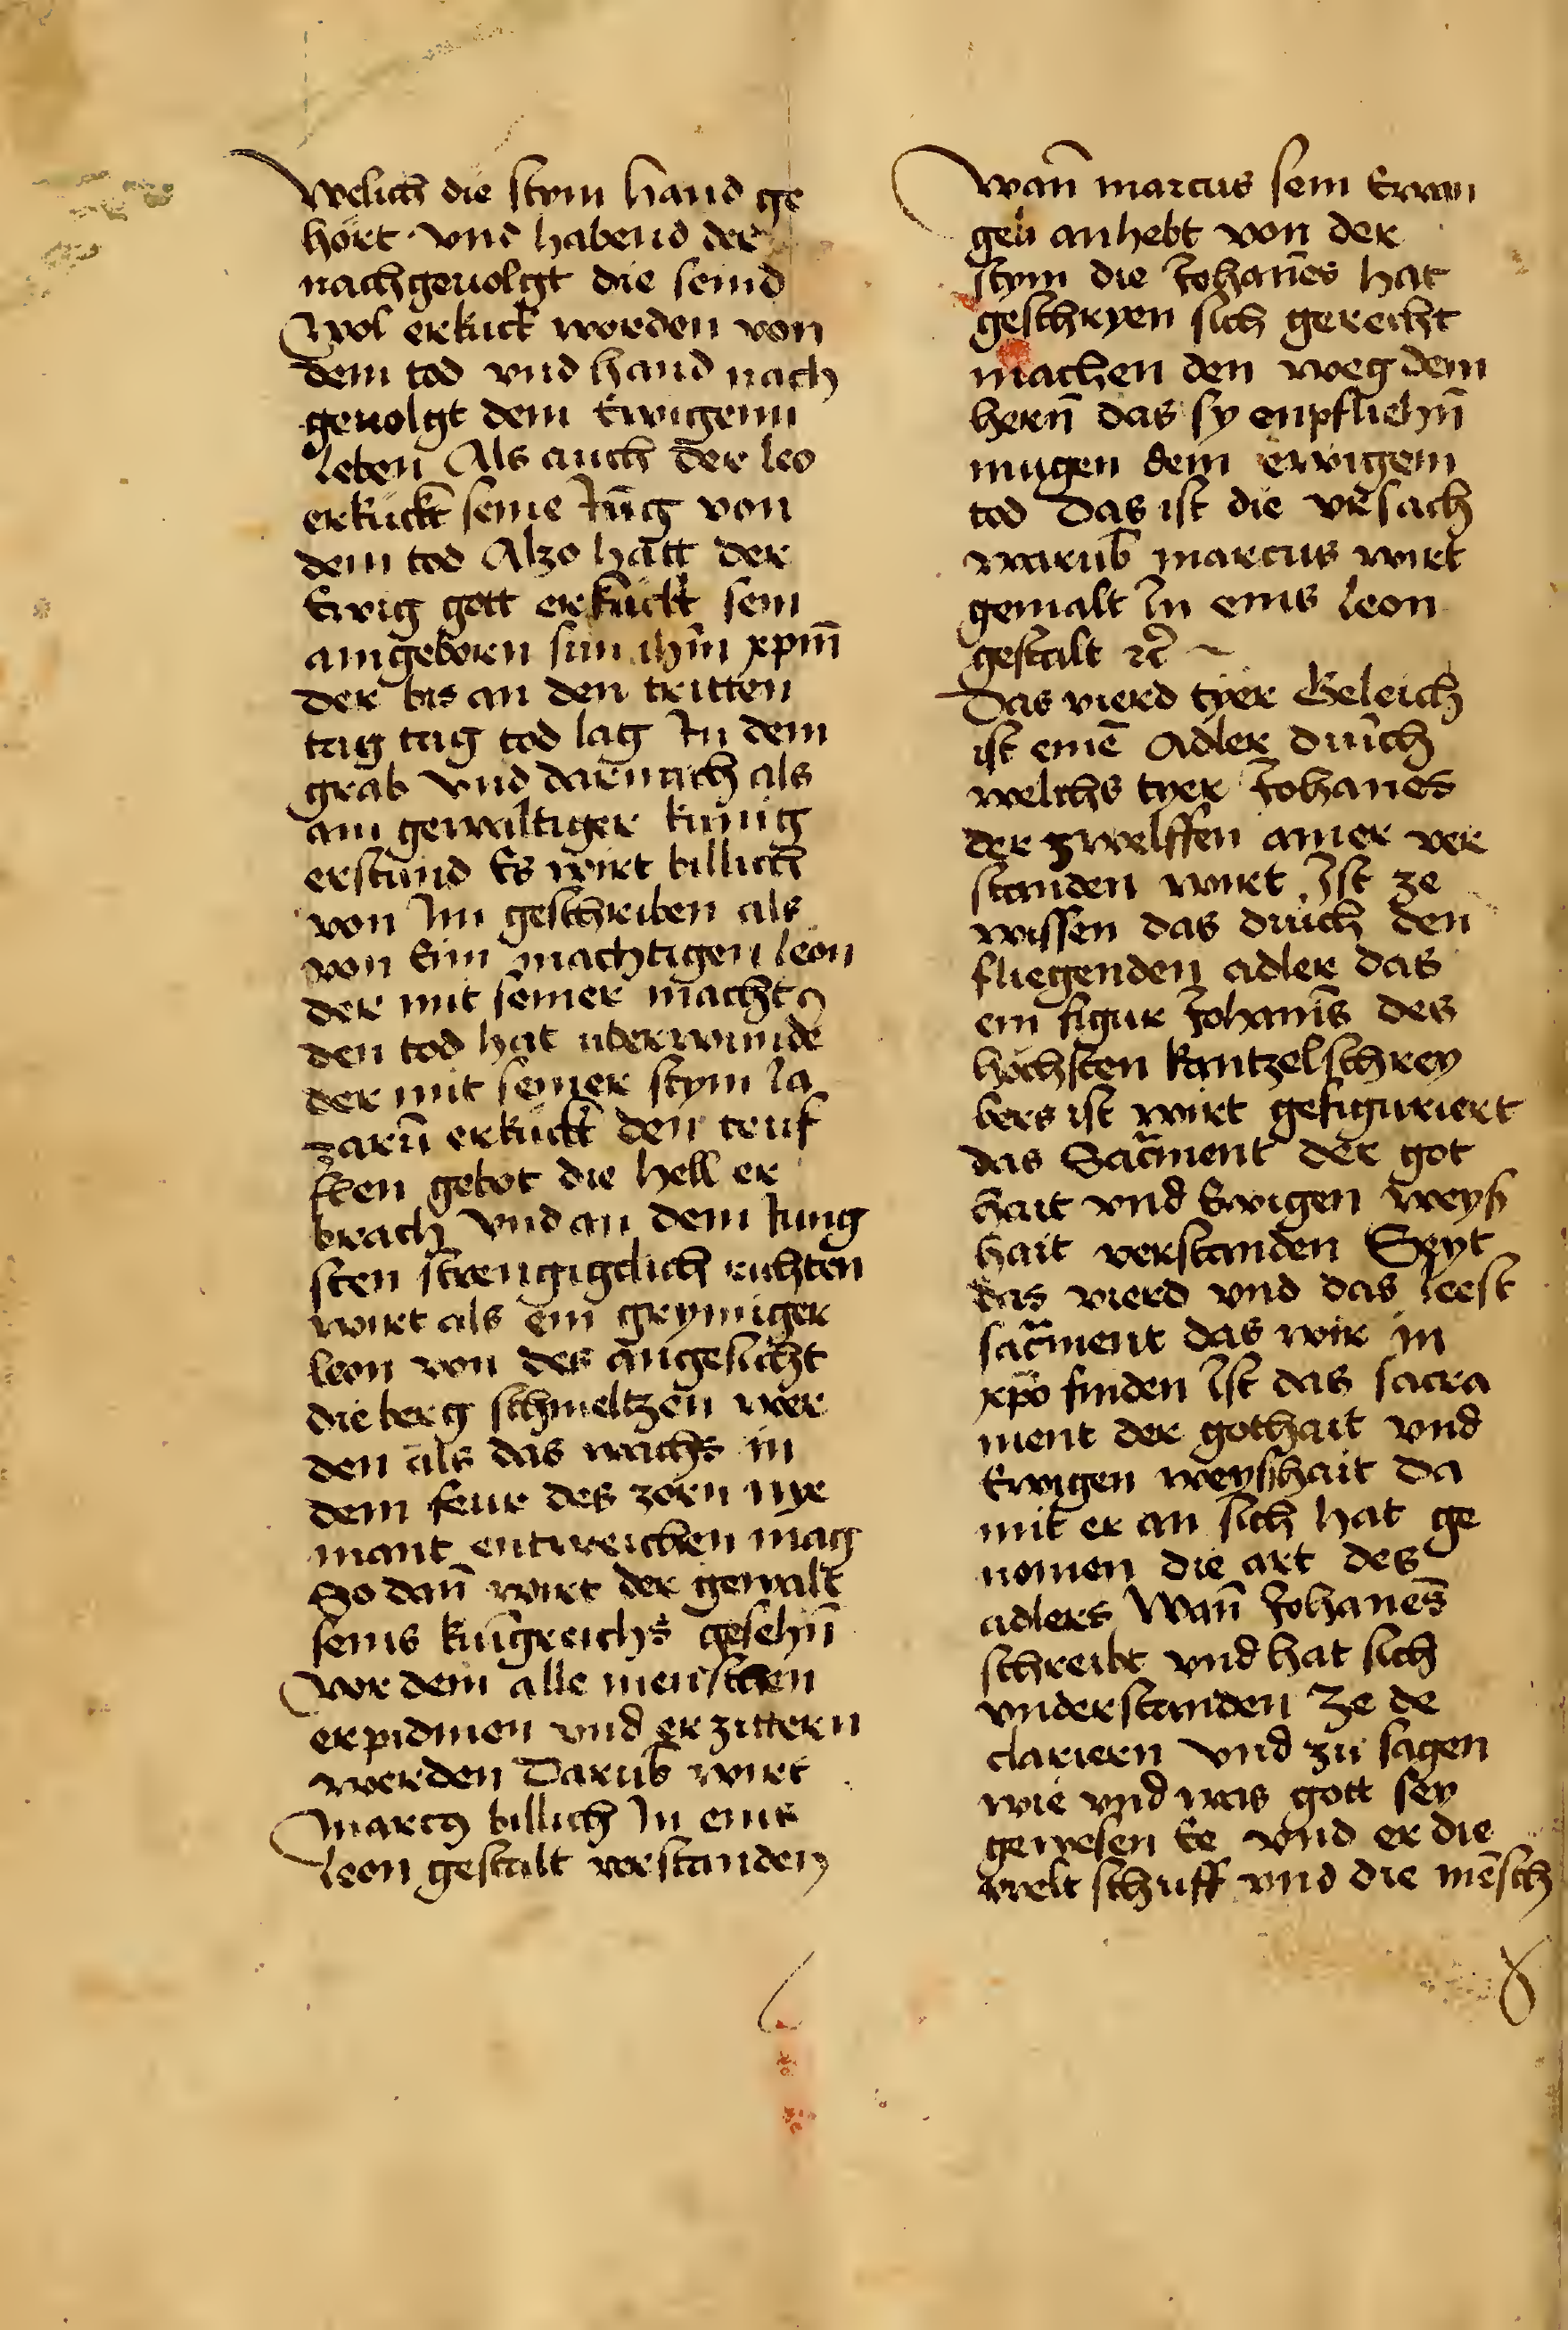 Welich die stym hand ge
hört vnd habend der
nachgeuolgt die seind
wol erkuckt worden von
dem tod vnd hand nach
geuolgt dem Ewigenn
leben Als auch der leo
erkückt seine Jūg von
dem tod Alzo hātt der
Ewig gott erkückt sein
aingeborn sun ihm̄ xpm̄
der bis an den tritten
tag tag tod lag In dem
grab vnd darnach als
ain gewaltiger kunig
erstund Es wirt billich
von Im geschreiben als
von Eim machtigen leon
der mit seiner macht
den tod hat uberwundē
der mit seiner stym la
zarū erkückt den teuf
feen gebot die hell er
brach vnd an dem Jung
sten strengigclich richten
wirt als ein grymiger
leon von des angesicht
die berg schmeltzen wer
den als das wachs in
dem feur des zorn nye
mant entweichen mag
So dan̄ wirt der gewalt
seins kungreichs gesehn̄
vor dem alle menschen
erpidmen vnd erzittern
werden Darub̄ wirt
Marcꝰ billich In eins
leon gestalt verstanden
Wan̄ marcus sein Ewan
geli anhebt von der
stym die Johan̄es hat
geschryen sich gerecht
machen den weg dem
hern̄ das sy enpfliehn̄
mugen dem ewigem
tod Das ist die vrsach
warub̄ marcus wirt
gemalt In eins leon
gestalt ꝛc̄
Das vierd tyer Geleich
ist einē Adler durch
welichs tyer Johanes
der zwelffen ainer ver
standen wirt Ist ze
wissen das durch den
fliegenden adler das
ein figur Johanis̄ des
höchsten kantzelschrey
bers ist wirt gefiguriert
das Sac̄ment der got
hait vnd Ewigen weyß
hait verstanden Seyt
das vierd vnd das leest
sac̄ment das wir in
xp̄o finden Ist das sacra
ment der gothait vnd
Ewigen weyßhait da
mit er an sich hat ge
nomen die art des
adlers Wan̄ Johanes̄
schreibt vnd hat sich
vnderstanden ze de
clariern vnd zu sagen
wie vnd was gott sey
gewesen Ee vnd er die
welt schuff vnd die mēsch